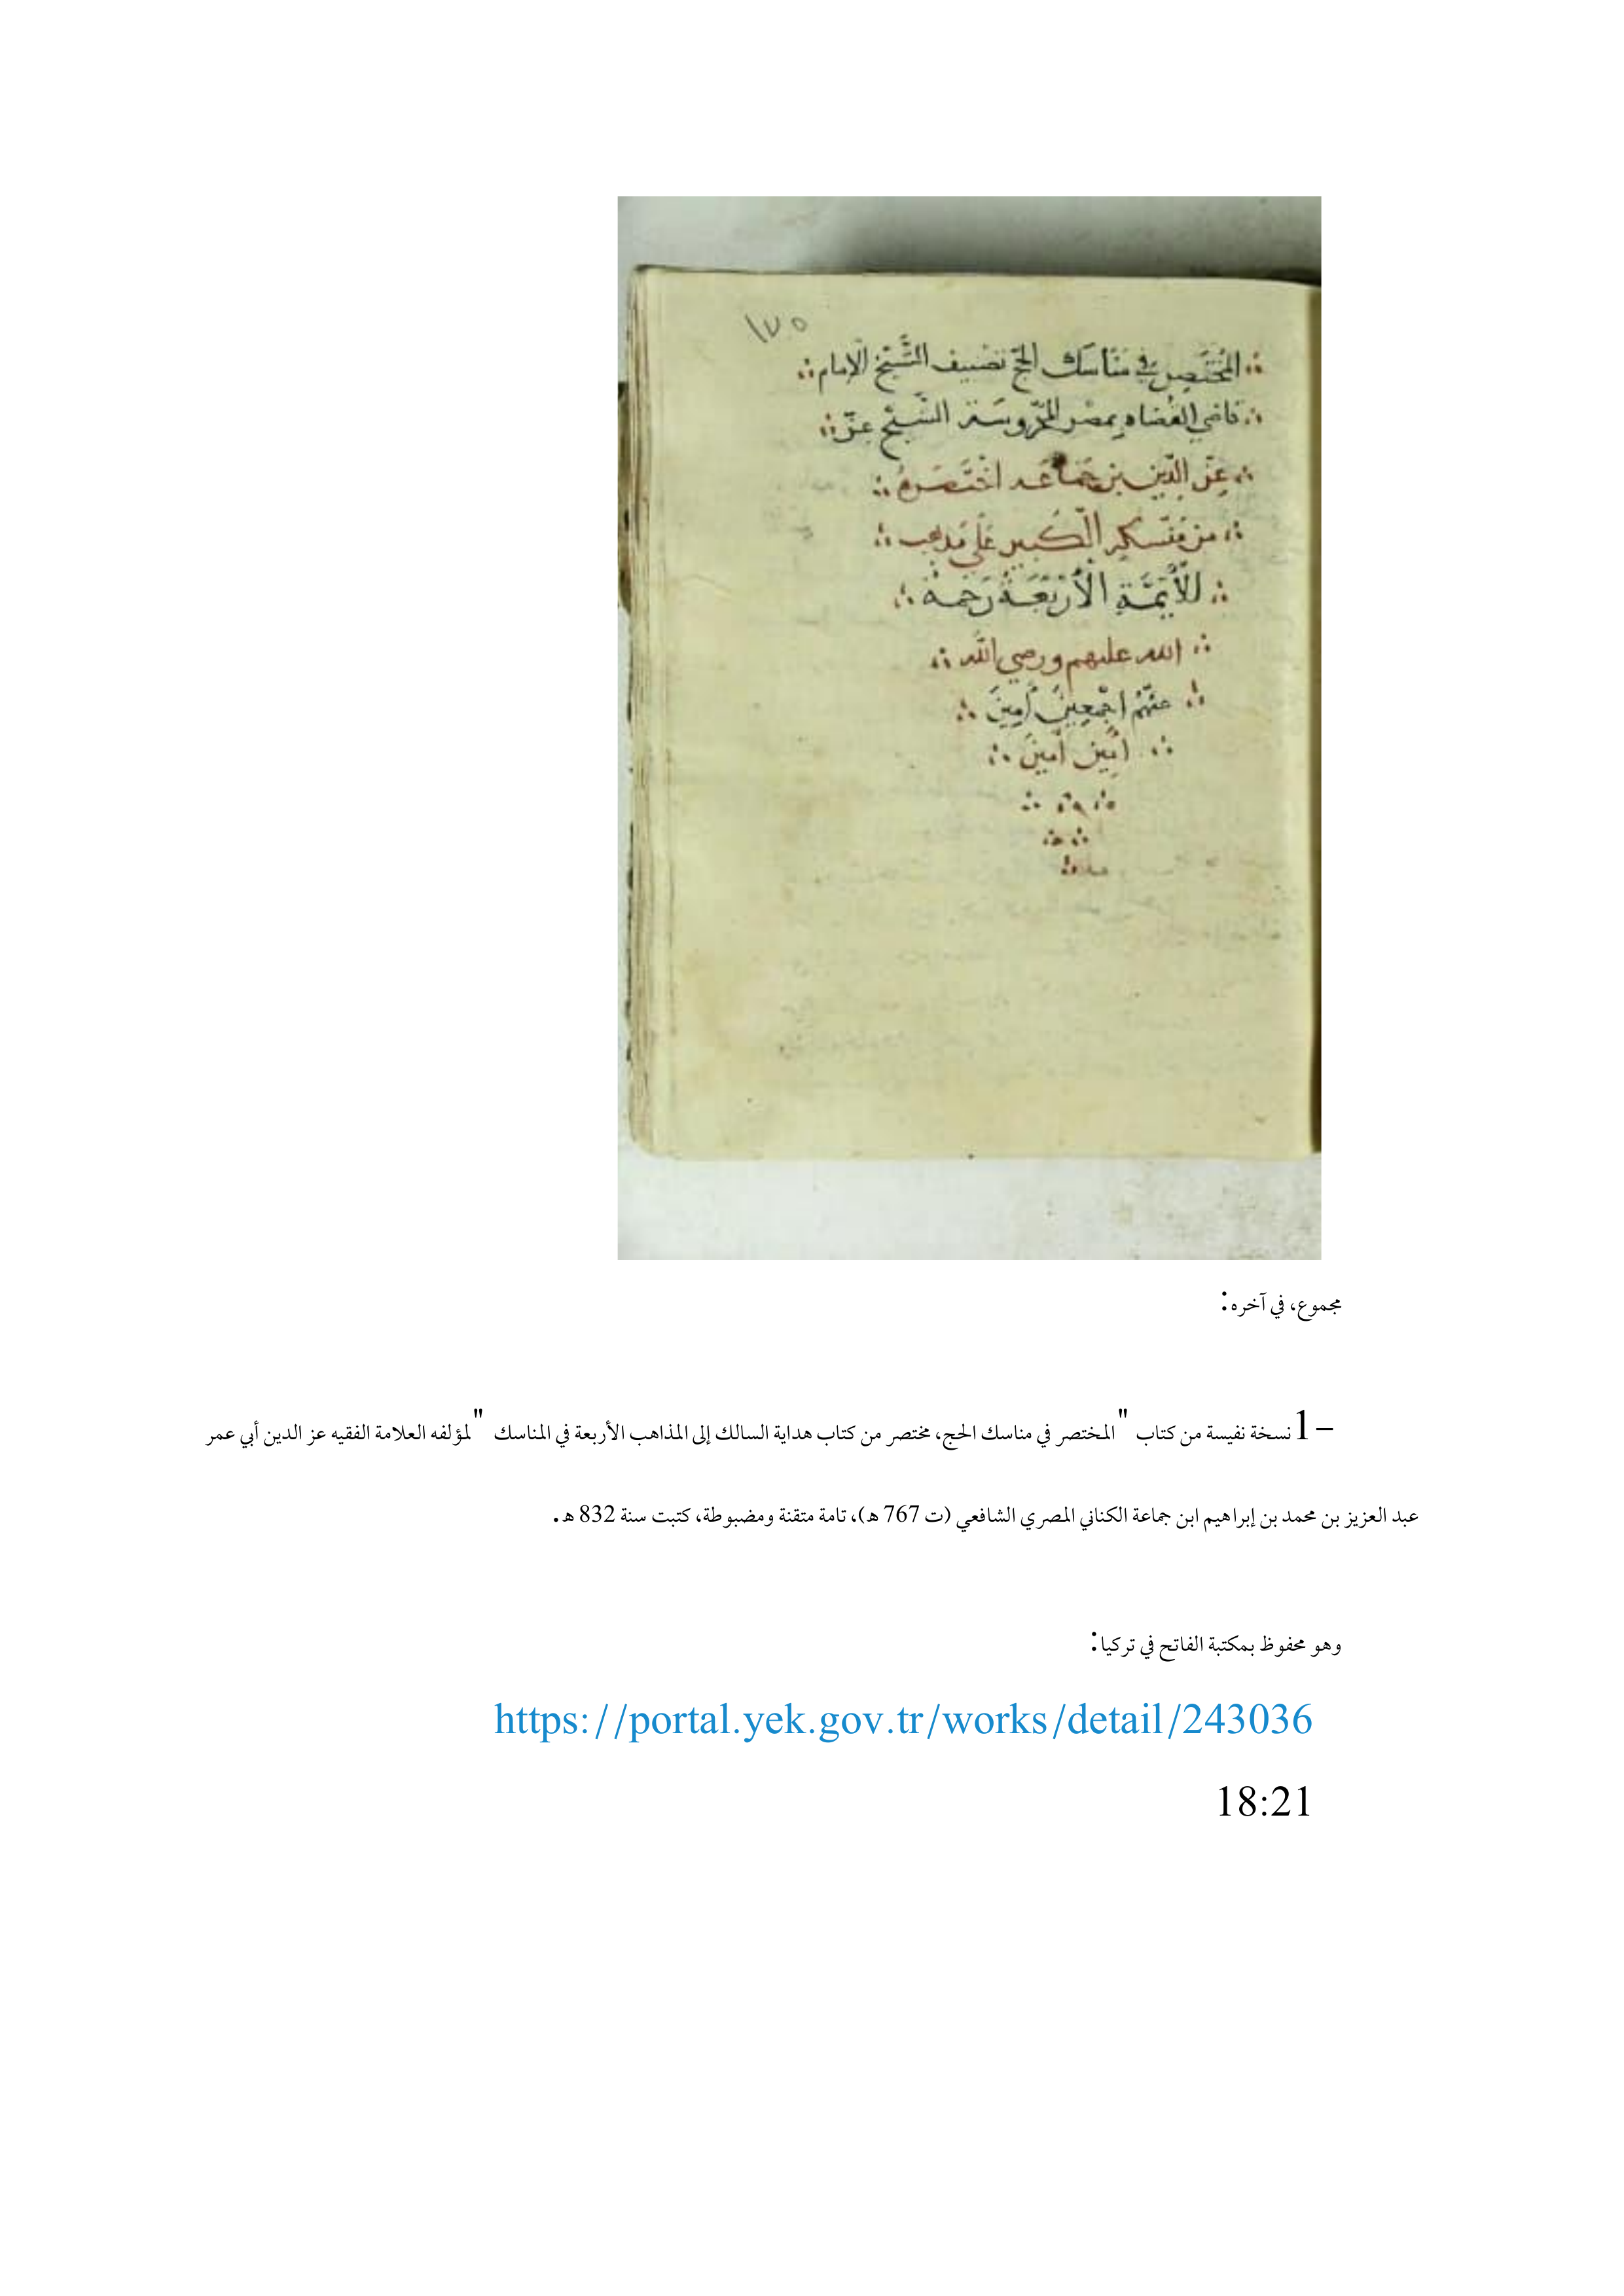 ١٧٥
المُخْتَصِر في مَنَاسَك الحَجّ تصْنيف الشَّيْخ الإمام
قاضي القُضاه بِمصْر المَحْرُوسَة الشَّيْخ عِزّ
عِزّ الدِّين بن جَمَاعَة اخْتَصَرهُ
من مَنْسَكِهِ الكَبير عَلى مَذهب
للأَئِمَّةِ الأَرْبَعَةُ رَحْمة
الله عليهم ورضي الله
عنْهُم اجْمعِينَ آمِينَ
آمِين آمينَ
مجموع، في آخره:
1- نسخة نفيسة من كتاب "المختصر في مناسك الحج، مختصر من كتاب هداية السالك إلى المذاهب الأربعة في المناسك" لمؤلفه العلامة الفقيه عز الدين أبي عمر
عبد العزيز بن محمد بن إبراهيم ابن جماعة الكناني المصري الشافعي (ت 767 هـ)، تامة متقنة ومضبوطة، كتبت سنة 832 هـ.
وهو محفوظ بمكتبة الفاتح في تركيا:
https://portal.yek.gov.tr/works/detail/243036
18:21